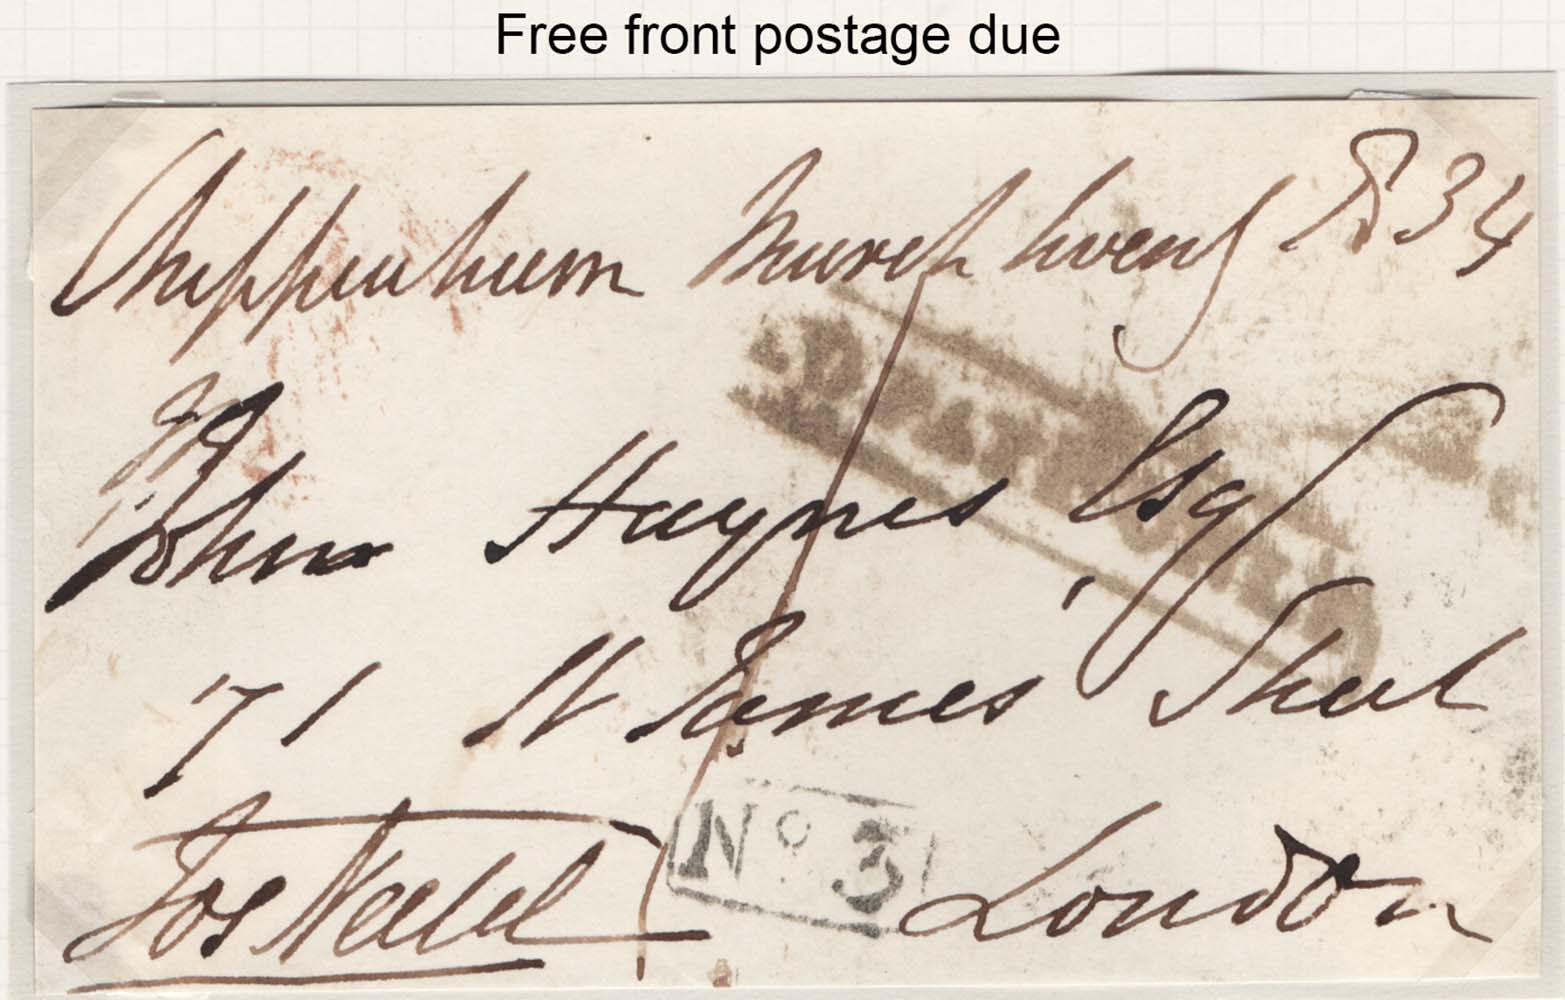 Free front postage due
Chippenham March twenty 8 34
John Haynes Esq
71 St James' Street
No 3
Jos Neeld London